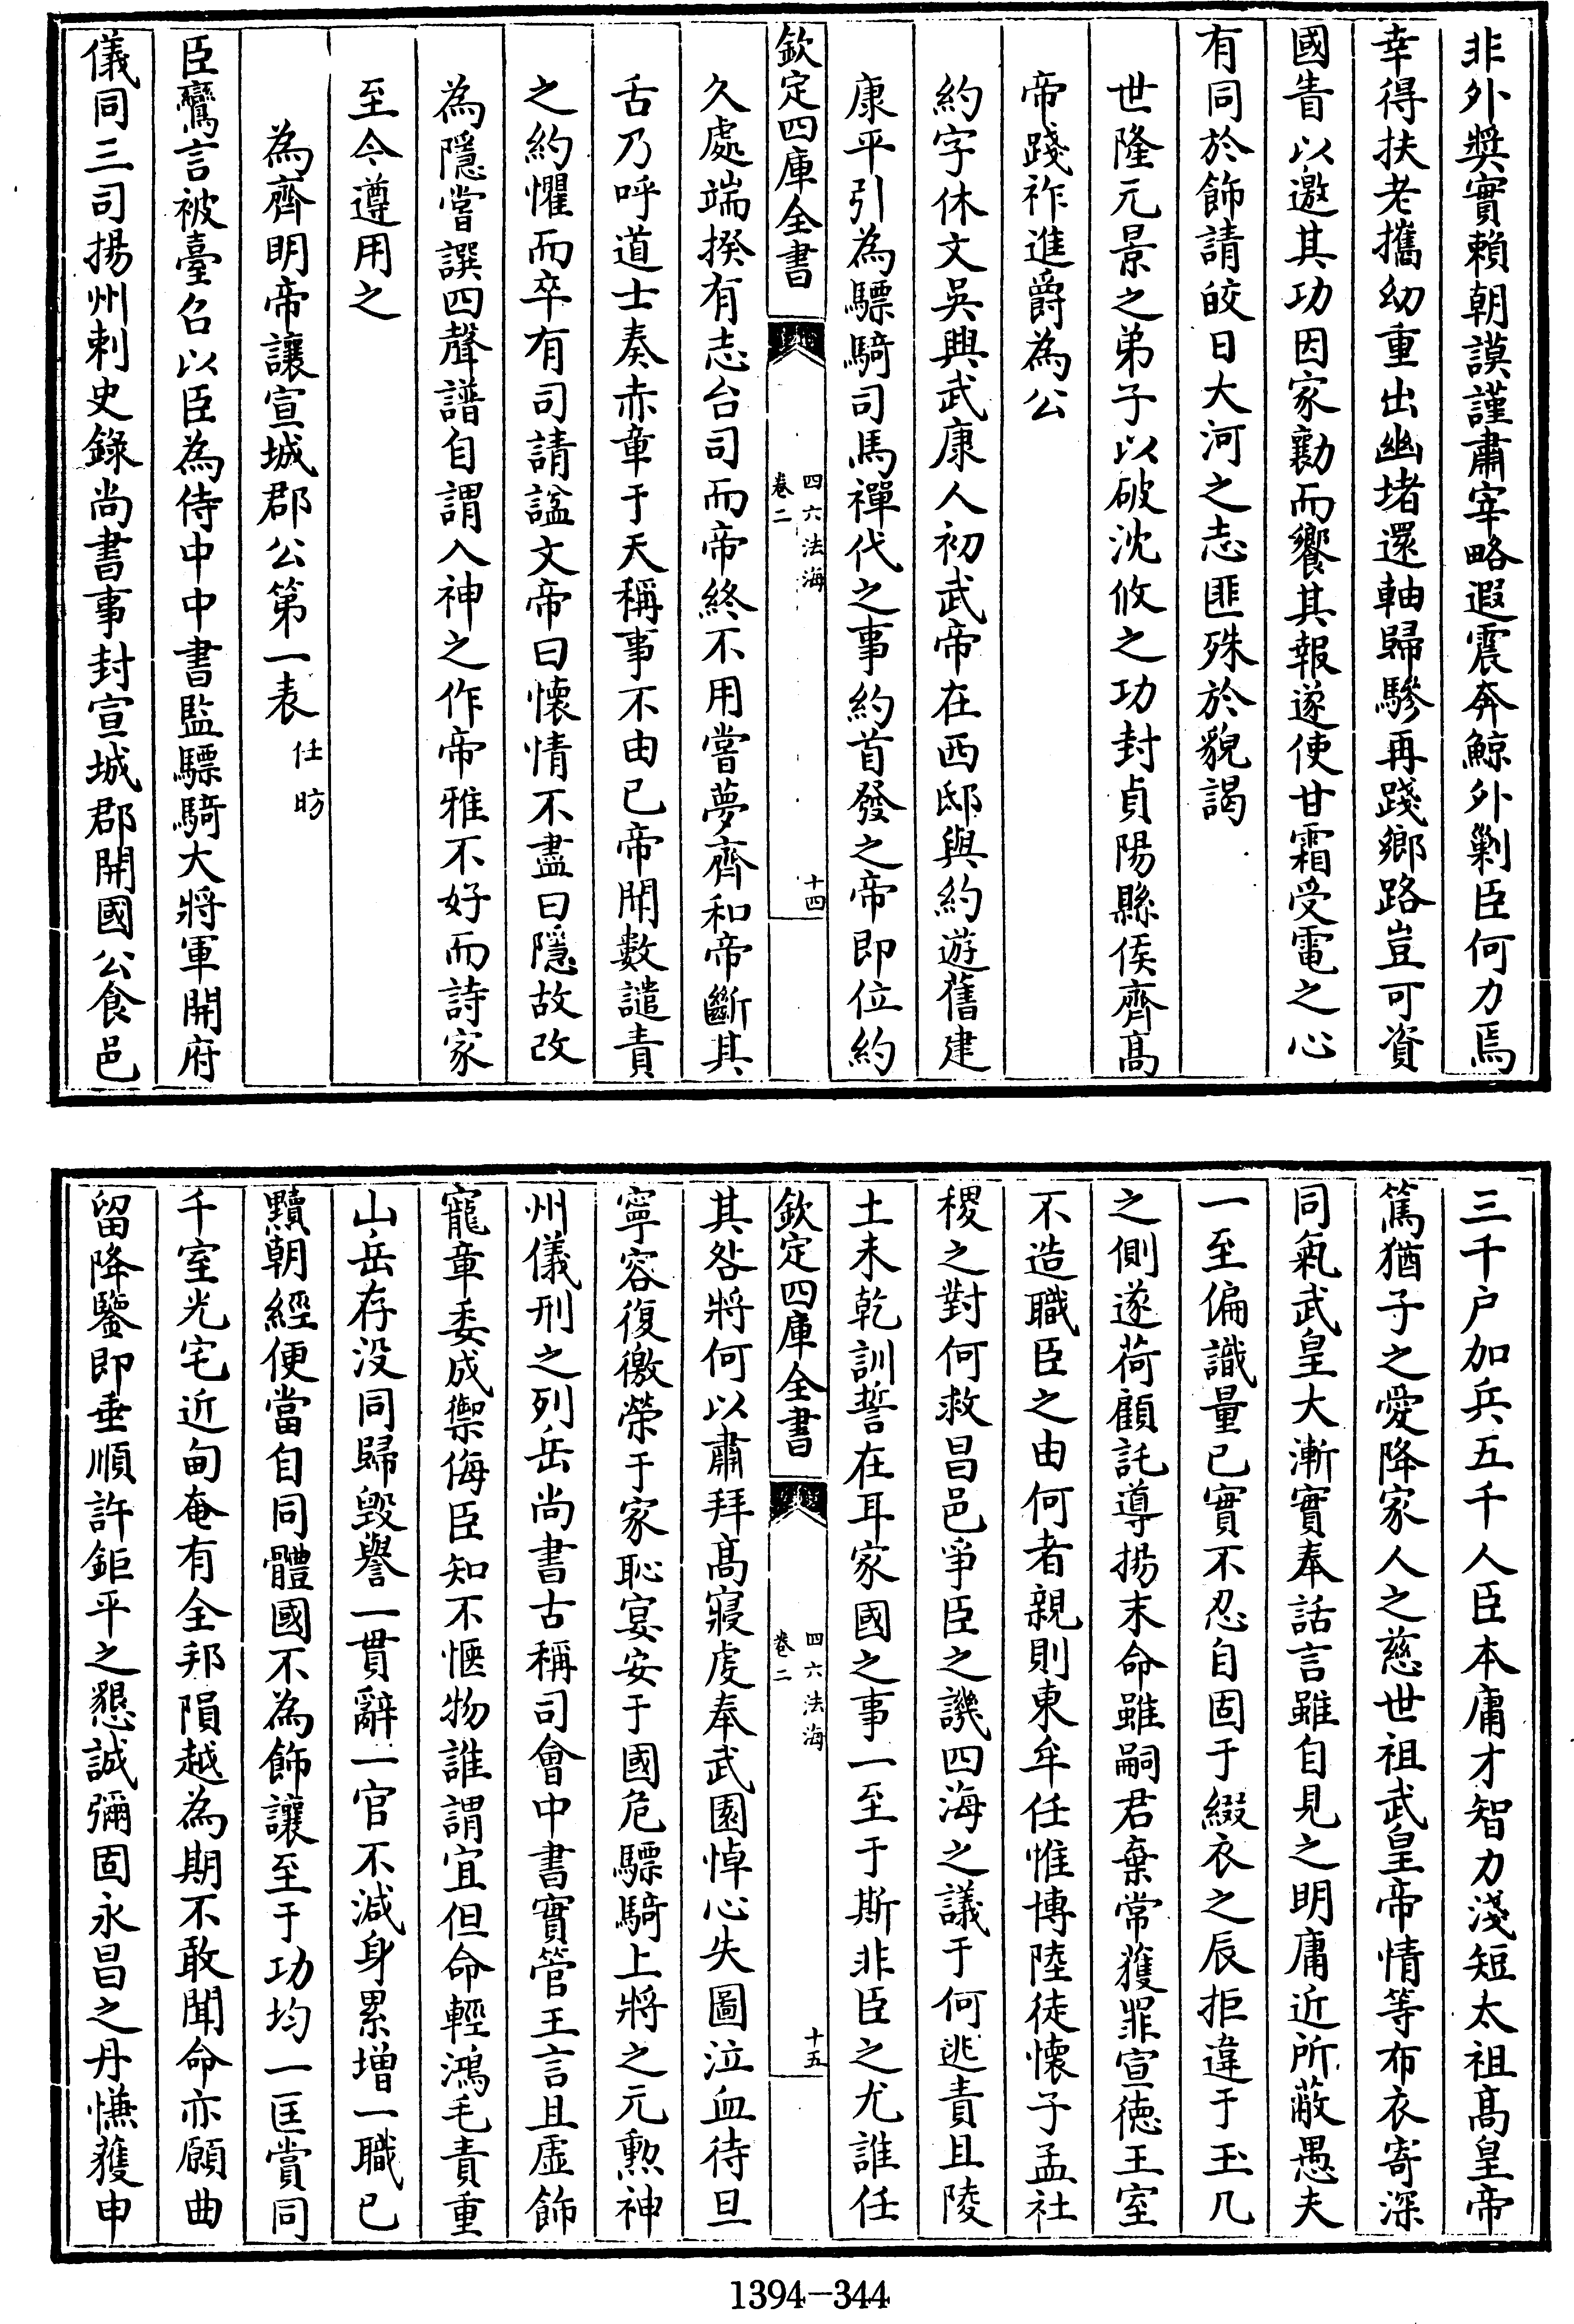 非外奬實賴朝謨謹肅宰略遐震奔鯨外剿臣何力焉
幸得扶老攜幼重出幽堵還軸歸驂再踐鄉路豈可資
國眚以邀其功因家勷而饗其報遂使甘霜受電之心
有同於飾請皎日大河之志匪殊於貌謁
世隆元景之弟子以破沈攸之功封貞陽縣侯齊高
帝踐祚進爵為公
約字休文吳興武康人初武帝在西邸與約遊舊建
康平引為驃騎司馬禪代之事約首發之帝即位約
欽定四庫全書
四六法海
卷二
十四
久處端揆有志台司而帝終不用嘗夢齊和帝斷其
舌乃呼道士奏赤章于天稱事不由已帝聞數譴責
之約懼而卒有司請諡文帝曰懷情不盡曰隱故改
為隱嘗譔四聲譜自謂入神之作帝雅不好而詩家
至今遵用之
為齊明帝讓宣城郡公第一表 任昉
臣鸞言被臺召以臣為侍中中書監驃騎大將軍開府
儀同三司揚州刺史錄尚書事封宣城郡開國公食邑
三千户加兵五千人臣本庸才智力淺短太祖高皇帝
篤猶子之愛降家人之慈世祖武皇帝情等布衣寄深
同氣武皇大漸實奉話言雖自見之明庸近所蔽愚夫
一至偏識量已實不忍自固于綴衣之辰拒違于玉几
之側遂荷顧託導揚末命雖嗣君棄常獲罪宣德王室
不造職臣之由何者親則東牟任惟博陸徒懷子孟社
稷之對何救昌邑爭臣之譏四海之議于何逃責且陵
土未乾訓誓在耳家國之事一至于斯非臣之尤誰任
欽定四庫全書
四六法海
卷二
十五
其咎將何以肅拜高寢虔奉武園悼心失圖泣血待旦
寧容復徼榮于家恥宴安于國危驃騎上將之元勲神
州儀刑之列岳尚書古稱司會中書實管王言且虛飾
寵章委成禦侮臣知不愜物誰謂宜但命輕鴻毛責重
山岳存没同歸毀譽一貫辭一官不減身累增一職已
黷朝經便當自同體國不為飾讓至于功均一匡賞同
千室光宅近甸奄有全邦隕越為期不敢聞命亦願曲
留降鑒即垂順許鉅平之懇誠彌固永昌之丹慊獲申
1394-344